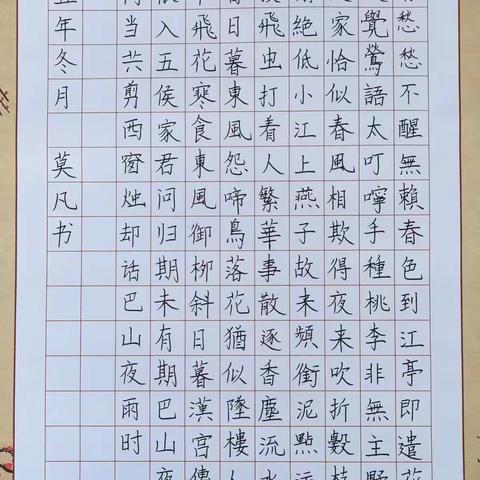 愁愁不醒無賴春色到江亭即遣花
覺鶯語太叮嚀手種桃李非無主野
家恰似春風相欺得夜来吹折數枝
絕低小江上燕子故来頻銜泥點污
飛虫打着人繁華事散逐香塵流水
日暮東風怨啼鳥落花猶似墜樓人
飛花寒食東風御柳斜日暮漢宮傳
入五侯家君問归期未有期巴山夜
当共剪西窗烛却话巴山夜雨时
年冬月 莫凡书